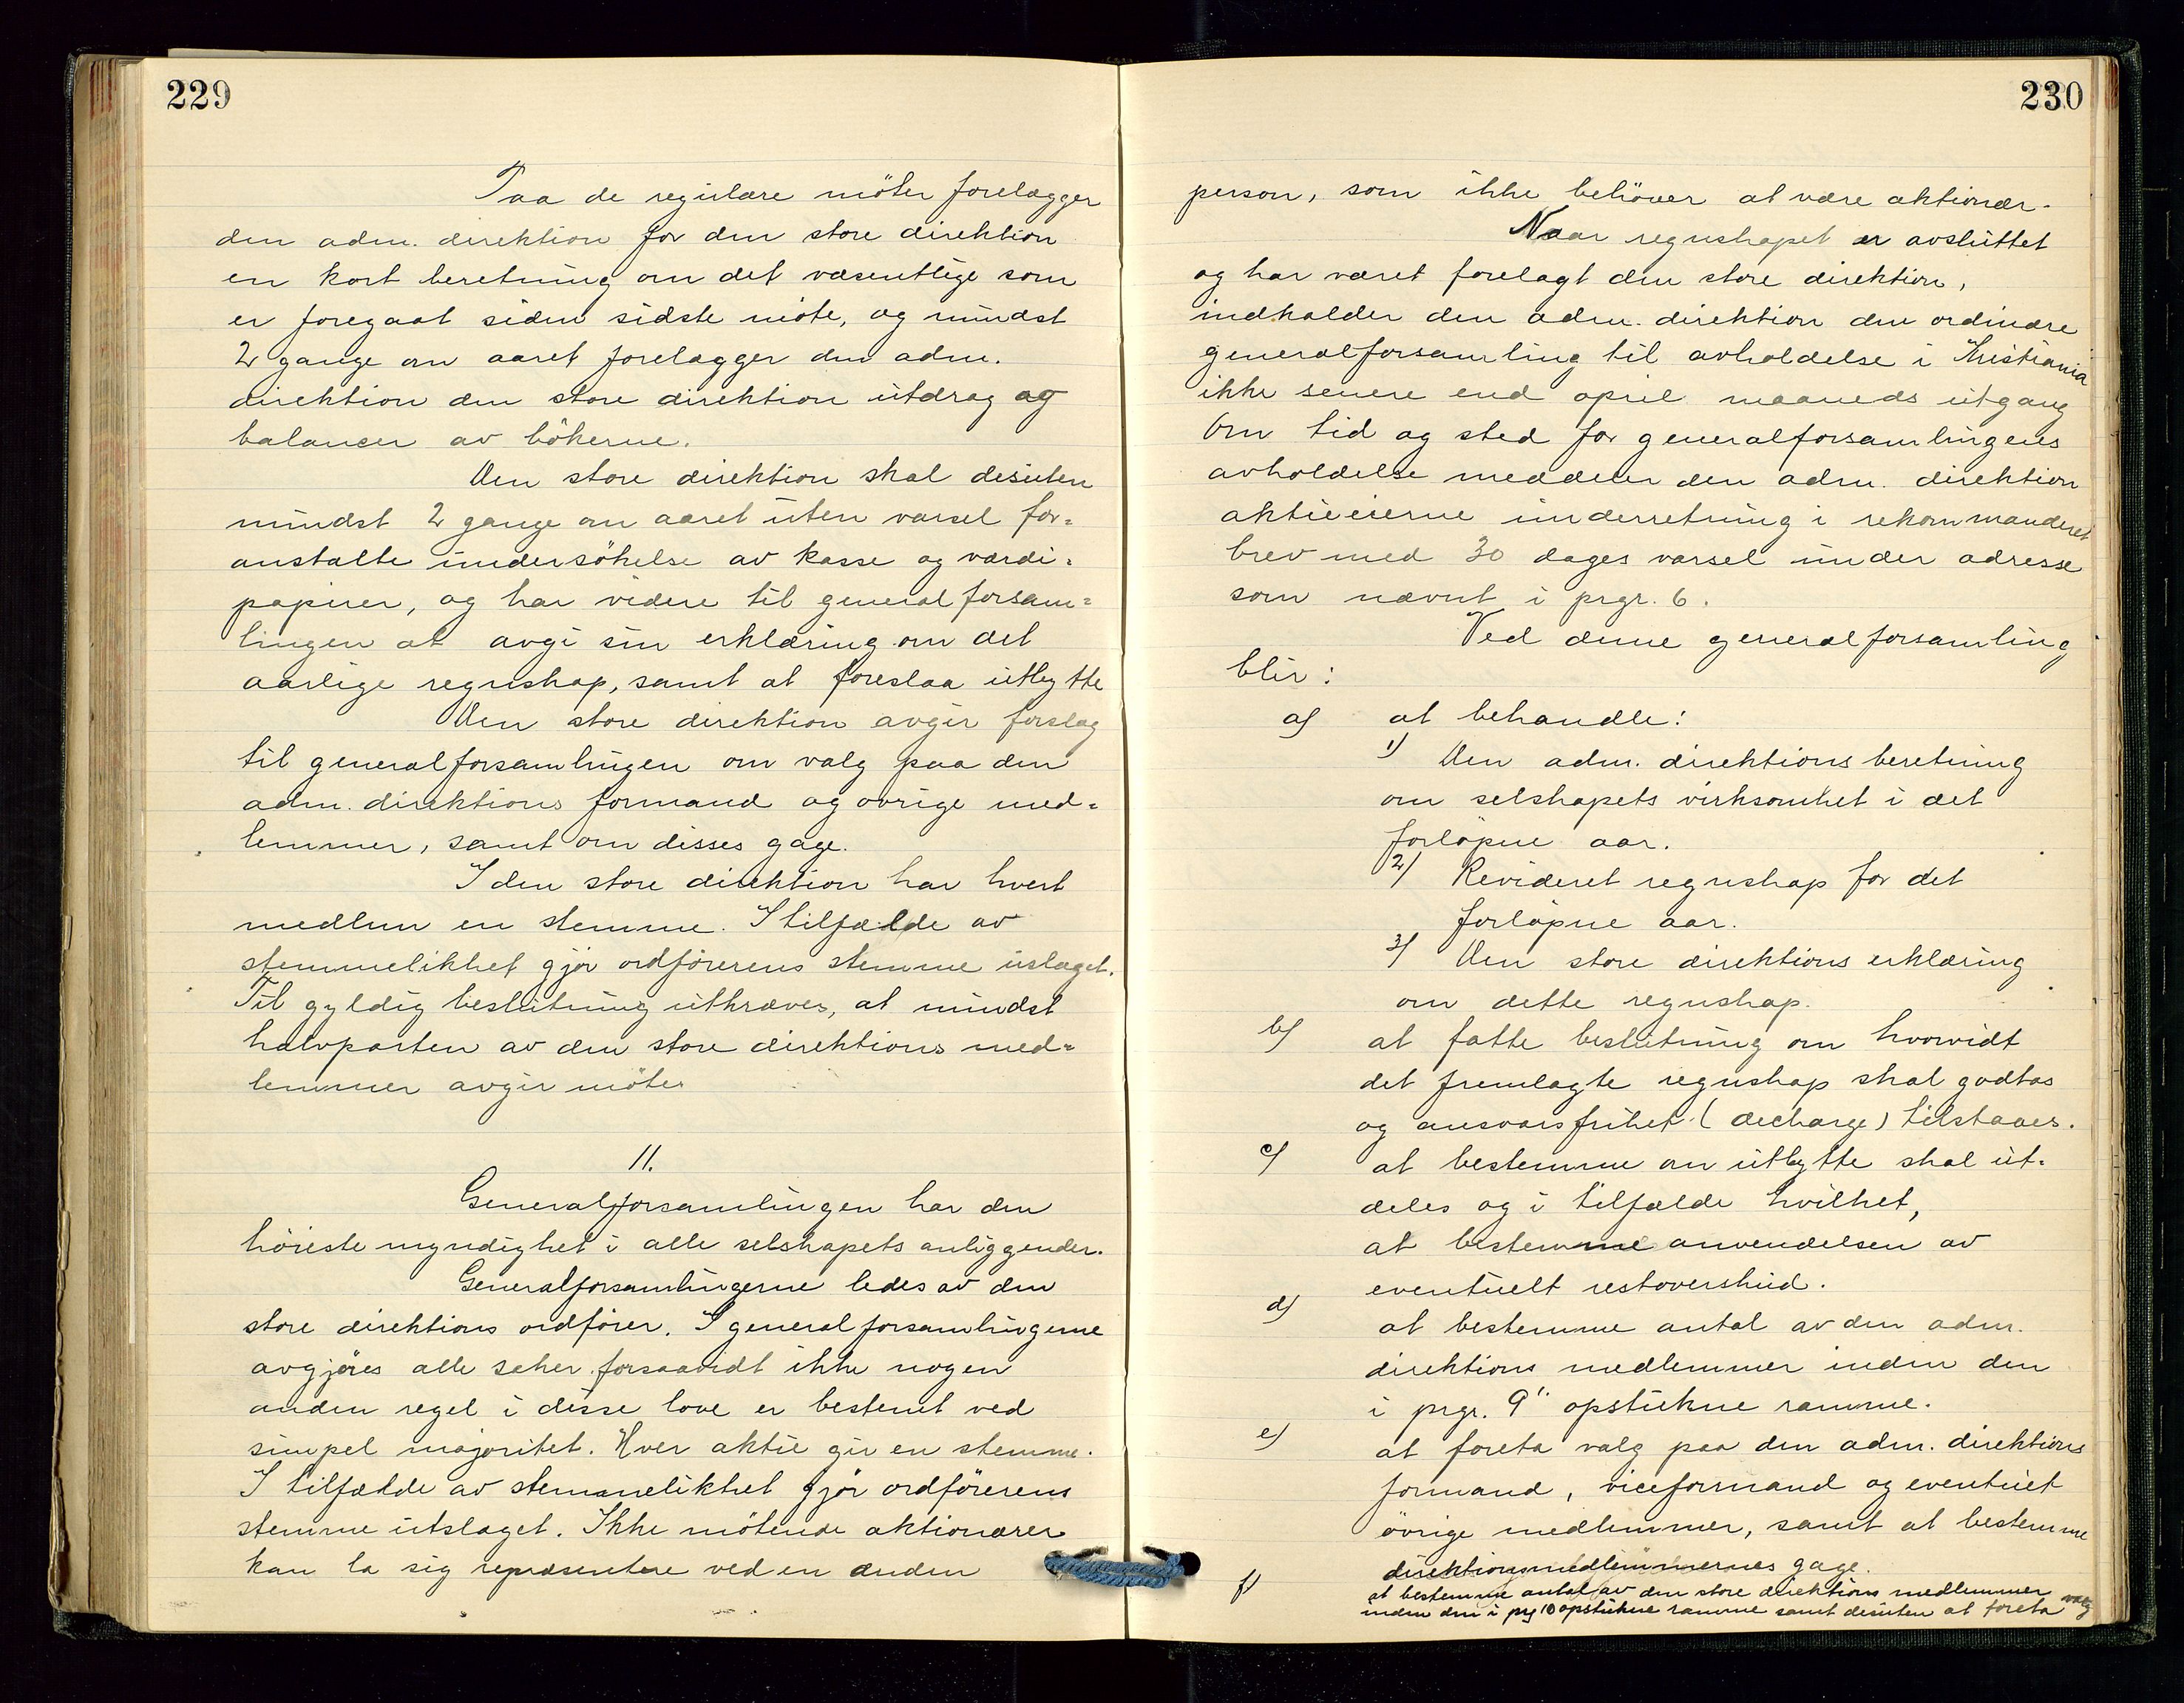 229
Paa de regulære möter forelægger
den adm. direktion for den store direktion
en kort beretning om det væsentlige som
er foregaat siden sidste möte, og mindst
2 gange om aaret forelægger den adm.
direktion den store direktion utdrag og
balancer av bökerne.
Den store direktion skal desuten
mindst 2 gange om aaret uten varsel for=
anstalte undersökelse av kasse og værdi=
papirer, og har videre til generalforsam=
lingen at avgi sin erklæring om det
aarlige regnskap, samt at foreslaa utbytte
Den store direktion avgir forslag
til generalforsamlingen om valg paa den
adm. direktions formand og övrige med=
lemmer, samt om disses gage.
I den store direktion har hvert
medlem en stemme. I tilfælde av
stemmelikhet gjör ordförerens stemme uslaget.
Til gyldig beslutning utkræves, at mindst
halvparten av den store direktions med=
lemmer avgir möte.
11.
Generalforsamlingen har den
höieste myndighet i alle selskapets anliggender.
Generalforsamlingerne ledes av den
store direktions ordförer. I generalforsamlingerne
avgjöres alle saker forsaavidt ikke nogen
anden regel i disse love er bestemt ved
simpel majoritet. Hver aktie gir en stemme.
I tilfælde av stemmelikhet gjör ordförerens
stemme utslaget. Ikke mötende aktionærer
kan la sig repræsentere ved en anden
230
person, som ikke behöver at være aktionær.
Naar regnskapet er avsluttet
og har været forelagt den store direktion,
indkalder den adm. direktion den ordinære
generalforsamling til avholdelse i Kristiania
ikke senere end april maaneds utgang
Om tid og sted for generalforsamlingens
avholdelse meddeler den adm. direktion
aktieeierne underretning i rekommanderet
brev med 30 dages varsel under adresse
som nævnt i prgr. 6.
Ved denne generalforsamling
blir:
a) at behandle:
1) Den adm. direktions beretning
om selskapets virksomhet i det
forlöpne aar.
2) Revideret regnskap for det
forlöpne aar.
3) Den store direktions erklæring
om dette regnskap.
b) at fatte beslutning om hvorvidt
det fremlagte regnskap skal godtas
og ansvarsfrihet (decharge) tilstaaes.
c) at bestemme om utbytte skal ut=
deles og i tilfælde hvilket,
at bestemme anvendelsen av
eventuelt restoverskud.
d) at bestemme antal av den adm.
direktions medlemmer inden den
i prgr. 9 opstukne ramme.
e) at foreta valg paa den adm. direktions
formand, viceformand og eventuet
övrige medlemmer, samt at bestemme
direktionsmedlemmernes gage.
f) at bestemme antal av den store direktions medlemmer
inden den i prg 10 opstukne ramme samt desuten at foreta valg